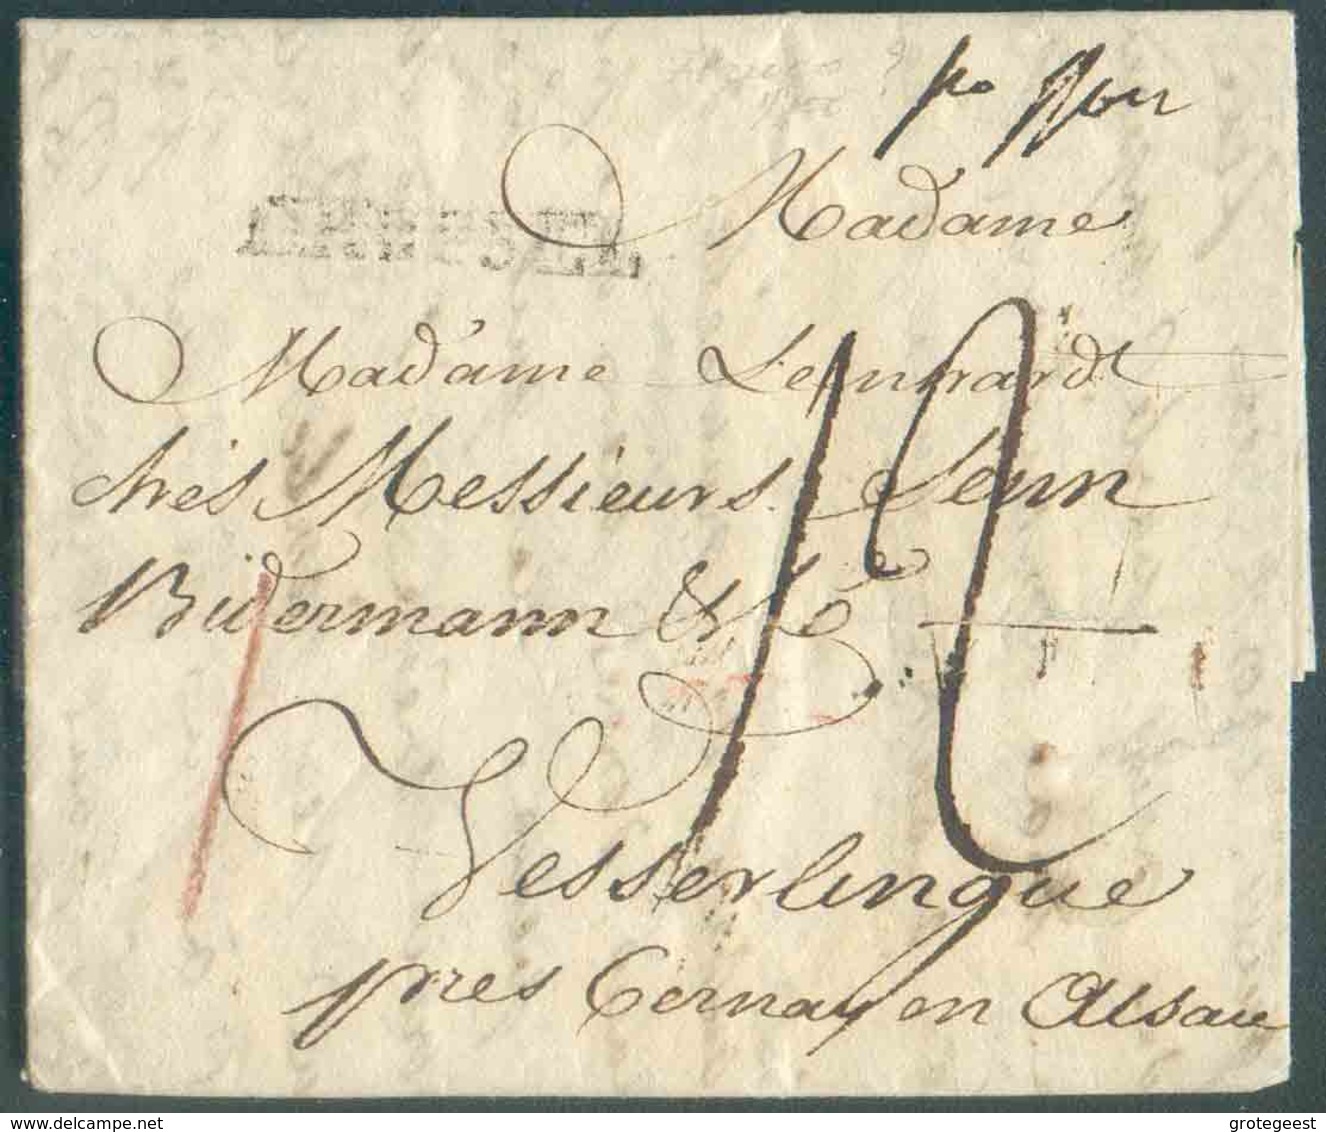 Madame
Madame Leonhard
chés Messieurs Senn
Bidermann & Ce
12
Wesserlingue
prés Cernay en Alsace
www.delcampe.net
grotegeest